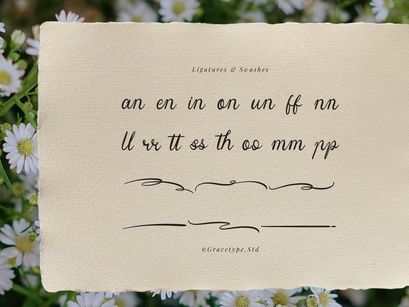 Ligatures & Swashes
an en in on un ff nn
ll rr tt ss th oo mm pp
©Gracetype.Std